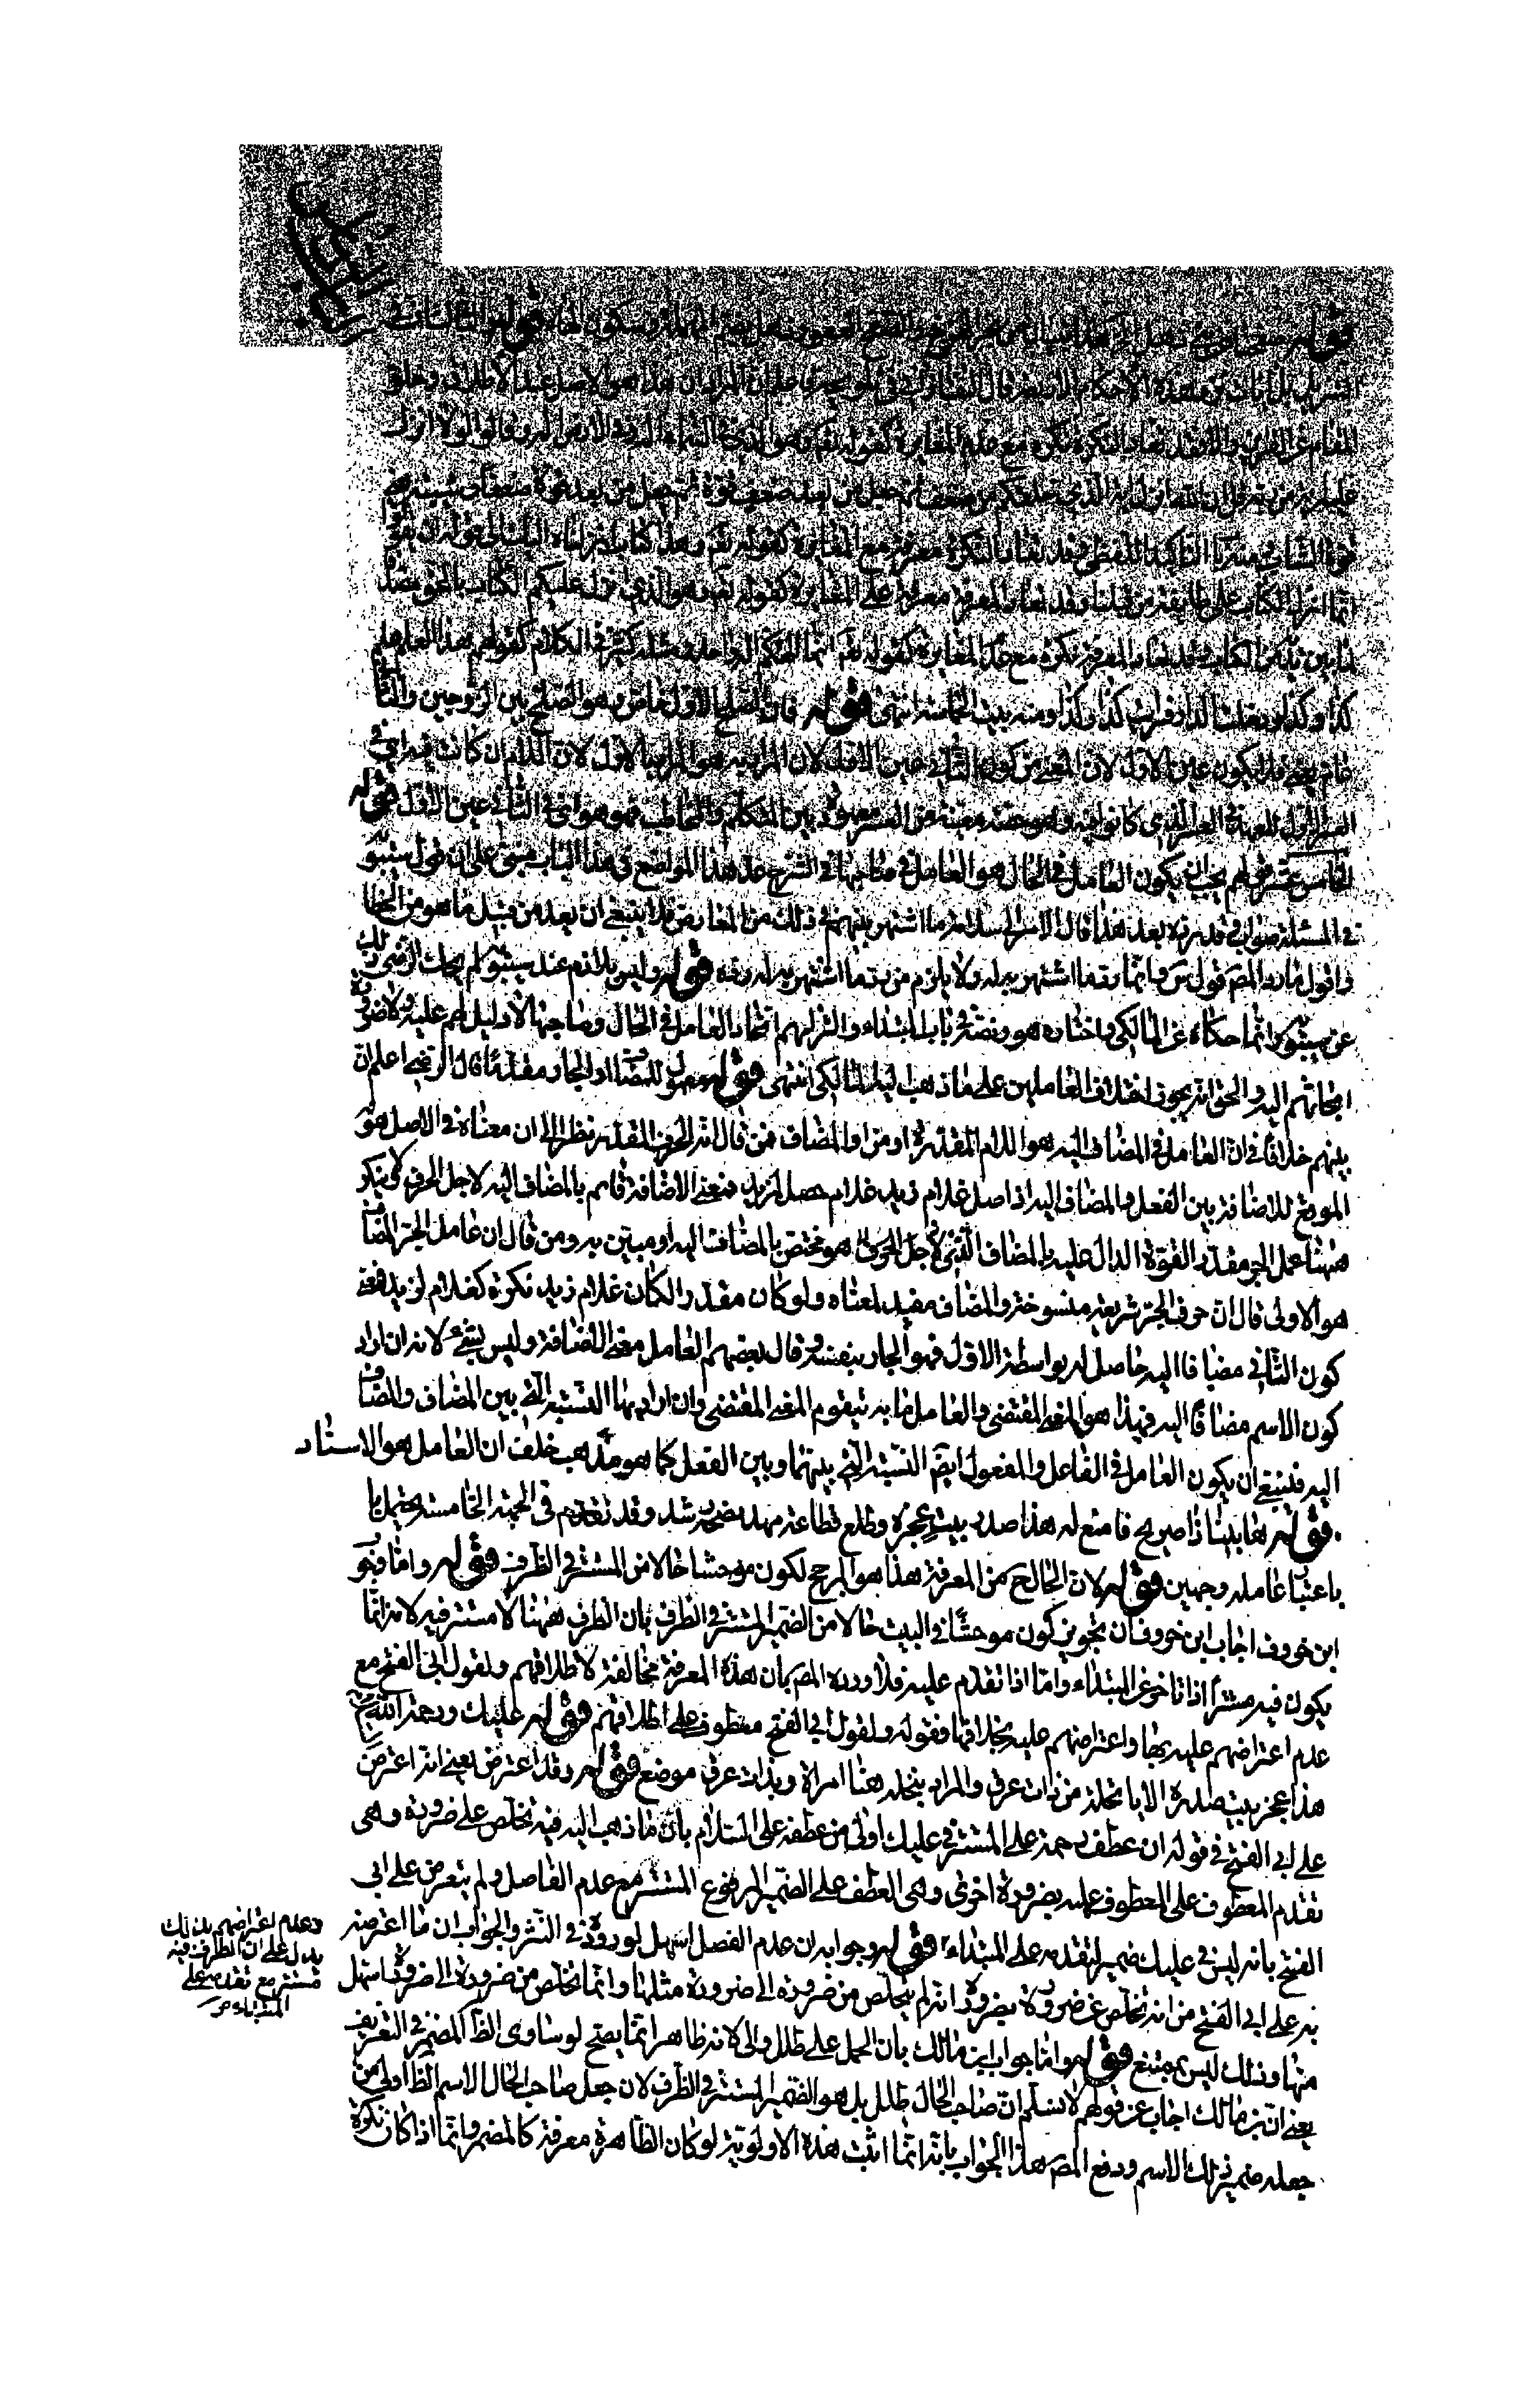 قوله صفحنا عن بني ذهل
التنزيل بل آيات من هذه الاحكام الاربعة قال التفتازاني في تلويحه واعلم ان المراد ان هذا هو الاصل عند الاطلاق وخلو
المقام عن القرائن والا فقد تعاد النكرة نكرة مع عدم المغايرة كقوله تعم وهو الذي في السماء اله وفي الارض اله وقالوا لولا انزل
عليه اية من ربه قل ان الله قادر على ان ينزل اية الذي خلقكم من ضعف ثم جعل من بعد ضعف قوة ثم جعل من بعد قوة ضعفا وشيبة يعني
قوة الشباب ومنه التاكيد اللفظي وقد تعاد النكرة معرفة مع المغايرة كقوله تعم وهذا كتاب انزلناه اليك الى قوله ان تقولوا
انما انزل الكتاب على طائفتين من قبلنا وقد تعاد المعرفة معرفة على المغايرة كقوله تعم هو الذي انزل عليكم الكتاب بالحق مصدقا
لما بين يديه من الكتاب وقد تعاد المعرفة نكرة مع عدم المغايرة كقوله تعم انما الهكم اله واحد ومثله كثير في الكلام كقولهم هذا العلم علم
كذا وكذا ودخلت الدار فرايت دارا كذا وكذا ومنه بيت الحماسة انتهى قوله فان الصلح الاول خاص وهو الصلح بين الزوجين والثاني
عام يعني فلا يكون عين الاول لان المعنى من كون الثاني عين الاول لان المراد به هو المراد بالاول لان اللام ان كانت فيه اي في
العسر الاول للعهد في العسر الذي كانوا فيه وهو حصة معينة من العسر معهودة بين المتكلم والمخاطب فهو هو اي في الثاني عين الاول قوله
الخامس عشر قولهم يجب ان يكون العامل في الحال هو العامل في صاحبها في الشرح عد هذا المواضع في هذا الباب مبنى على ان قول سيبويه
في المسئلة صواب وقد رده بعد هذا قال الامر الى سلامة ما اشتهر بينهم في ذلك من المعارض فلا ينبغي ان يعد من قبيل ما هو من الخطا
واقول ما رد المصـ قول س وانما رد ما اشتهر به له ولا يلزم من رد ما اشتهر به له رده قوله وليس بلازم عند سيبويه لم يحك الرضي ذلك
عن سيبويه وانما حكاه عن المالكي واختاره هو ونصه في باب المبتداء والتزامهم اتحاد العامل في الحال وصاحبها لا دليل لهم عليه ولا ضرورة
الجاتهم اليه والحق انه يجوز اختلاف العاملين على ما ذهب اليه المالكي انتهى قوله معمول للمضاف او الجار مقدرا قال الرضي اعلم ان
بينهم خلافا في ان العامل في المضاف اليه هو اللام المقدرة او من او المضاف فمن قال انه الحرف المقدر نظر الى ان معناه في الاصل هو
الموقع للاضافة بين الفعل والمضاف اليه اذ اصل غلام زيد غلام حصل لزيد فمعنى الاضافة قائم بالمضاف اليه لاجل الحرف ولا ينكر
ههنا عمل الجر مقدرا لقوة الدال عليه بالمضاف الذي لاجل الحرف هو مختص بالمضاف اليه او مبين به ومن قال ان عامل الجر المضاف
هو الاولى قال ان حرف الجر شريعة منسوخة والمضاف مفيد لمعناه ولو كان مقدرا لكان غلام زيد نكرة كغلام لزيد فمعنى
كون الثاني مضافا اليه حاصل له بواسطة الاول فهو الجار بنفسه وقال بعضهم العامل معنى الاضافة وليس بشئ لانه ان اراد
كون الاسم مضافا اليه فهذا هو المعنى المقتضي والعامل ما به يتقوم المعنى المقتضي وان اراد بها النسبة التي بين المضاف والمضاف
اليه فينبغي ان يكون العامل في الفاعل والمفعول ايضا النسبة التي بينهما وبين الفعل كما هو مذهب خلف ان العامل هو الاسناد
قوله ها بينا ذا صريح فاصنع له هذا صدر بيت عجزه وطع فطاعة مهد نصحه رشد وقد تقدم في الجهة الخامسة يحتمل ها
باعتبار عامله وجهين قوله لان الحال ح من المعرفة هذا هو المرجح لكون موحشا حالا من المستتر في الظرف قوله واما قول
ابن خروف اجاب ابن خروف ان تجويز كون موحشا في البيت حالا من الضمير المستتر في الظرف بان الظرف ههنا لا مستتر فيه لانه انما
يكون فيه مستترا اذا تاخر عن المبتداء واما اذا تقدم عليه فلا ورده المصـ بان هذه المعرفة مخالفة لاطلاقهم ولقول ابي الفتح مع
عدم اعتراضهم عليه بها واعتراضهم عليه بخلافها فقوله ولقول ابي الفتح معطوف على اطلاقهم قوله عليك ورحمة الله السلام
هذا عجز بيت صدره الا يا نخلة من ذات عرق والمراد بنخله هنا امراة وبذات عرق موضع قوله وقد اعترض يعني انه اعترض
على ابي الفتح في قوله ان عطف رحمة على المستتر في عليك اولى من عطفه على السلام بان ما ذهب اليه فيه تخلص على ضرورة وهي
تقدم المعطوف على المعطوف عليه بضرورة اخرى وهي العطف على الضمير المرفوع المستتر مع عدم الفاصل ولم يتعرض على ابي
الفتح بانه ليس في عليك ضمير لتقدمه على المبتداء قوله وجوابه ان عدم الفصل اسهل لوروده في النثر والجواب ان ما اعترضه
به على ابي الفتح من انه تخلص عن ضرورة بضرورة انه لم يتخلص من ضرورة الى ضرورة مثلها وانما تخلص من ضرورة الى ضرورة اسهل
منها وذلك ليس بممتنع قوله واما جواب ابن مالك بان الحمل على طلل اولى لانه ظاهر انما يصح لو ساوى الظاهر المضمر في التعريف
يعني ان بن مالك اجاب عن قولهم لا نسلم ان صاحب الحال طلل بل هو الضمير المستتر في الظرف لان جعل صاحب الحال الاسم الظاهر اولى من
جعله ضمير ذلك الاسم ودفع المصـ هذا الجواب بانه انما اثبت هذه الاولوية لو كان الظاهرة معرفة كالمضمر وانما اذا كان نكرة
وعدم اعتراضهم بذلك
يدل على ان الظرف فيه
مستتر مع تقدمه على
المبتداء